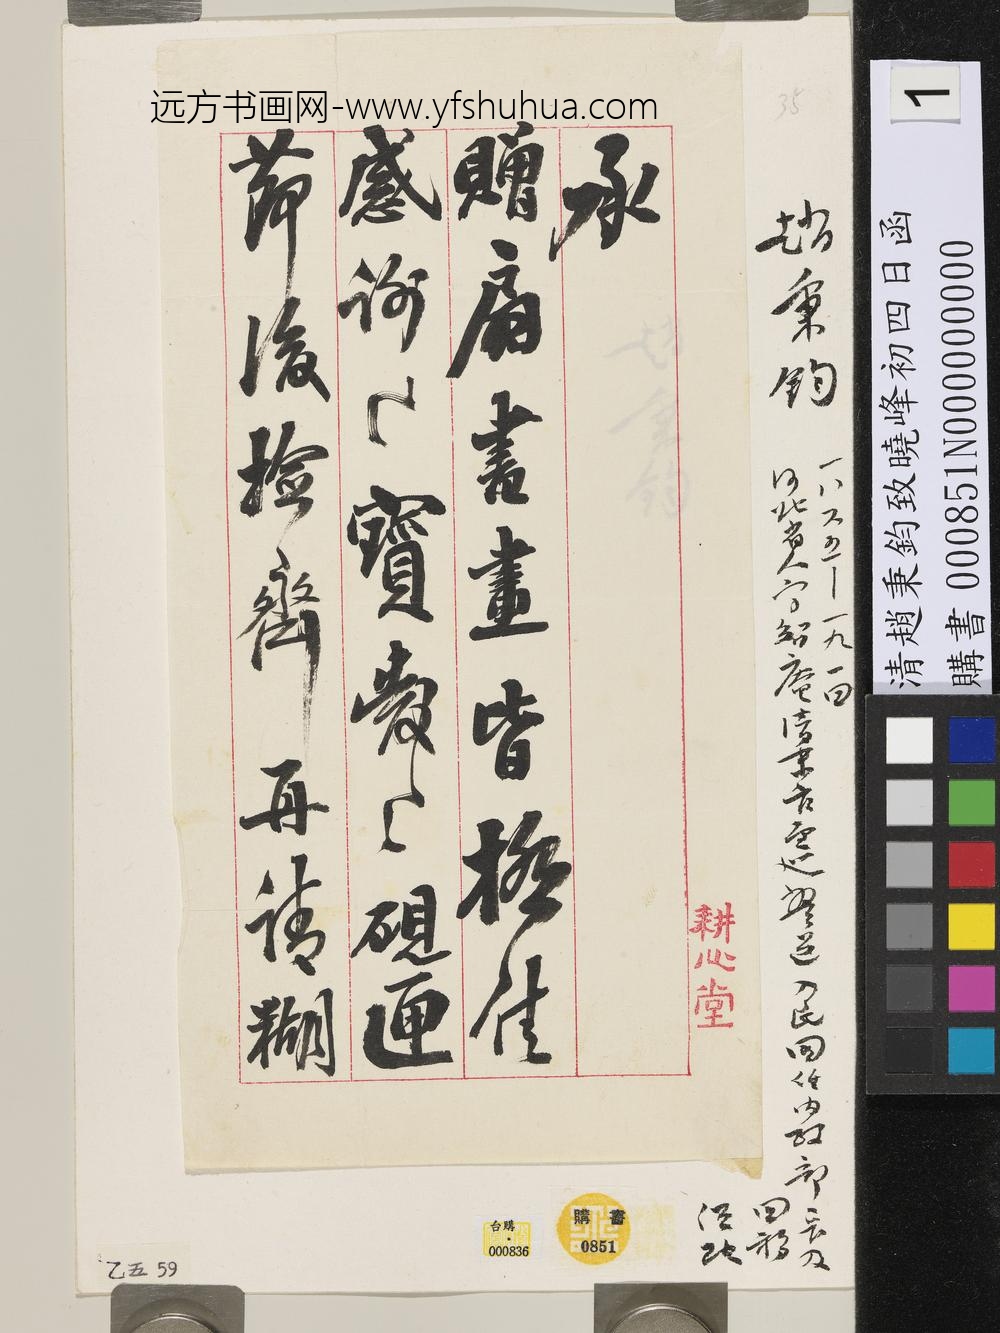 远方书画网-www.yfshuhua.com
35
1
清趙秉鈞致曉峰初四日函
購書 000851N000000000
趙秉鈞
一八六五—一九一四
河北省人字智庵清末官至巡警道入民國任內政部長及
回務
經跋
耕心堂
承
贈扇書畫皆極佳
感謝〻寶發〻硯匣
節後撿齊再請糊
趙秉鈞
台購
000836
購書
0851
乙五 59